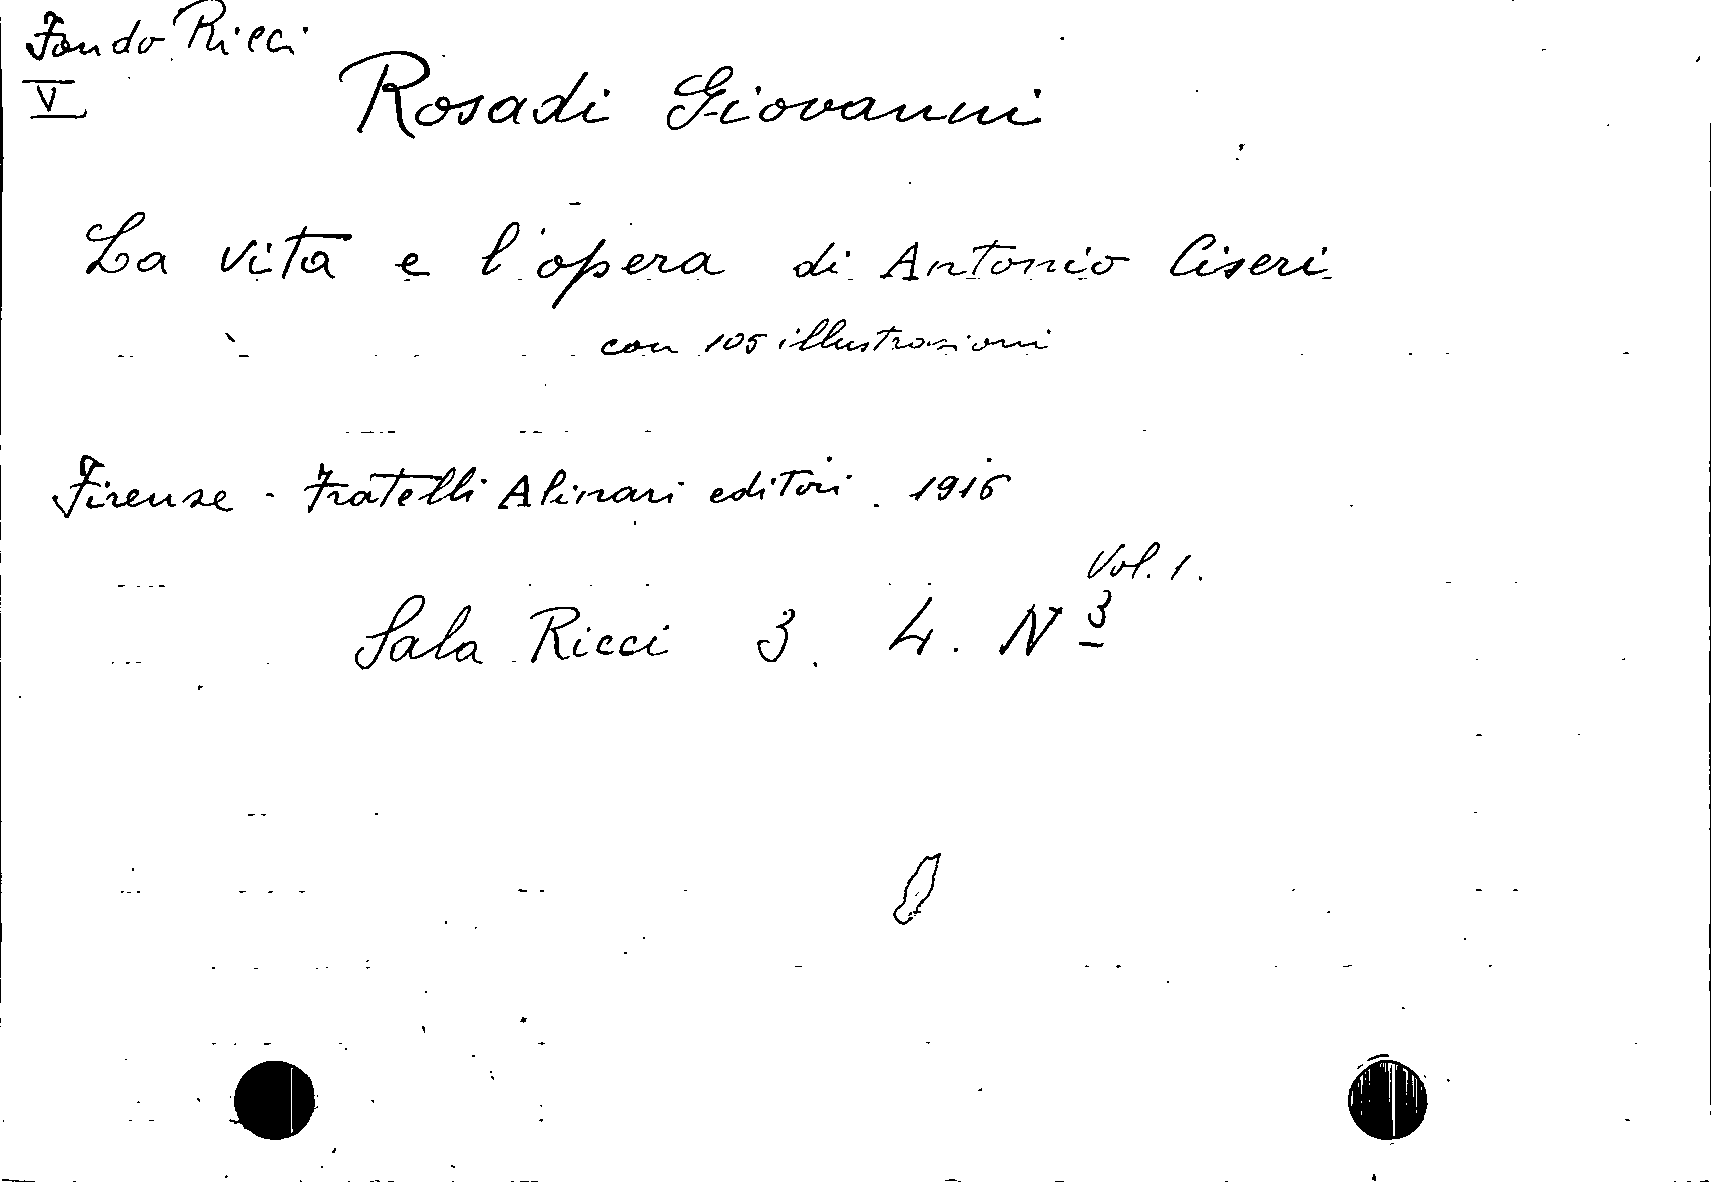 Fondo Ricci
V
Rosadi Giovanni
La vita e l'opera di Antonio Ciseri
con 105 illustrazioni
Firenze - Fratelli Alinari editori. 1916
Vol. 1.
Sala Ricci 3. 4. N 3